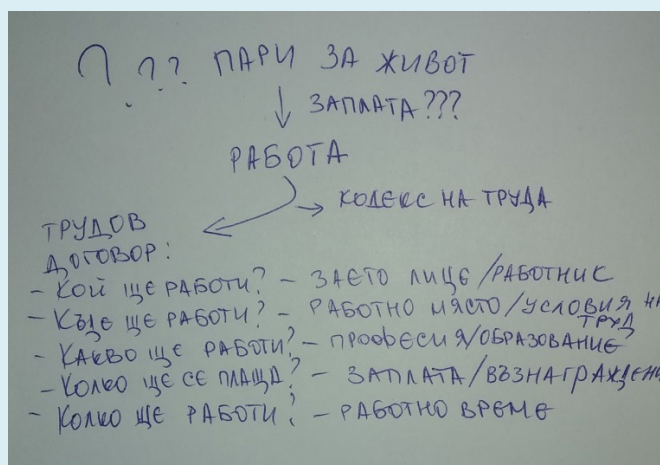 ? ? ? ПАРИ ЗА ЖИВОТ
ЗАПЛАТА???
РАБОТА
КОДЕКС НА ТРУДА
ТРУДОВ
ДОГОВОР:
- КОЙ ЩЕ РАБОТИ? - ЗАЕТО ЛИЦЕ/РАБОТНИК
- КЪДЕ ЩЕ РАБОТИ? - РАБОТНО МЯСТО/УСЛОВИЯ НА
ТРУД
- КАКВО ЩЕ РАБОТИ? - ПРОФЕСИЯ/ОБРАЗОВАНИЕ
- КОЛКО ЩЕ СЕ ПЛАЩА? - ЗАПЛАТА/
- КОЛКО ЩЕ РАБОТИ? - РАБОТНО ВРЕМЕ